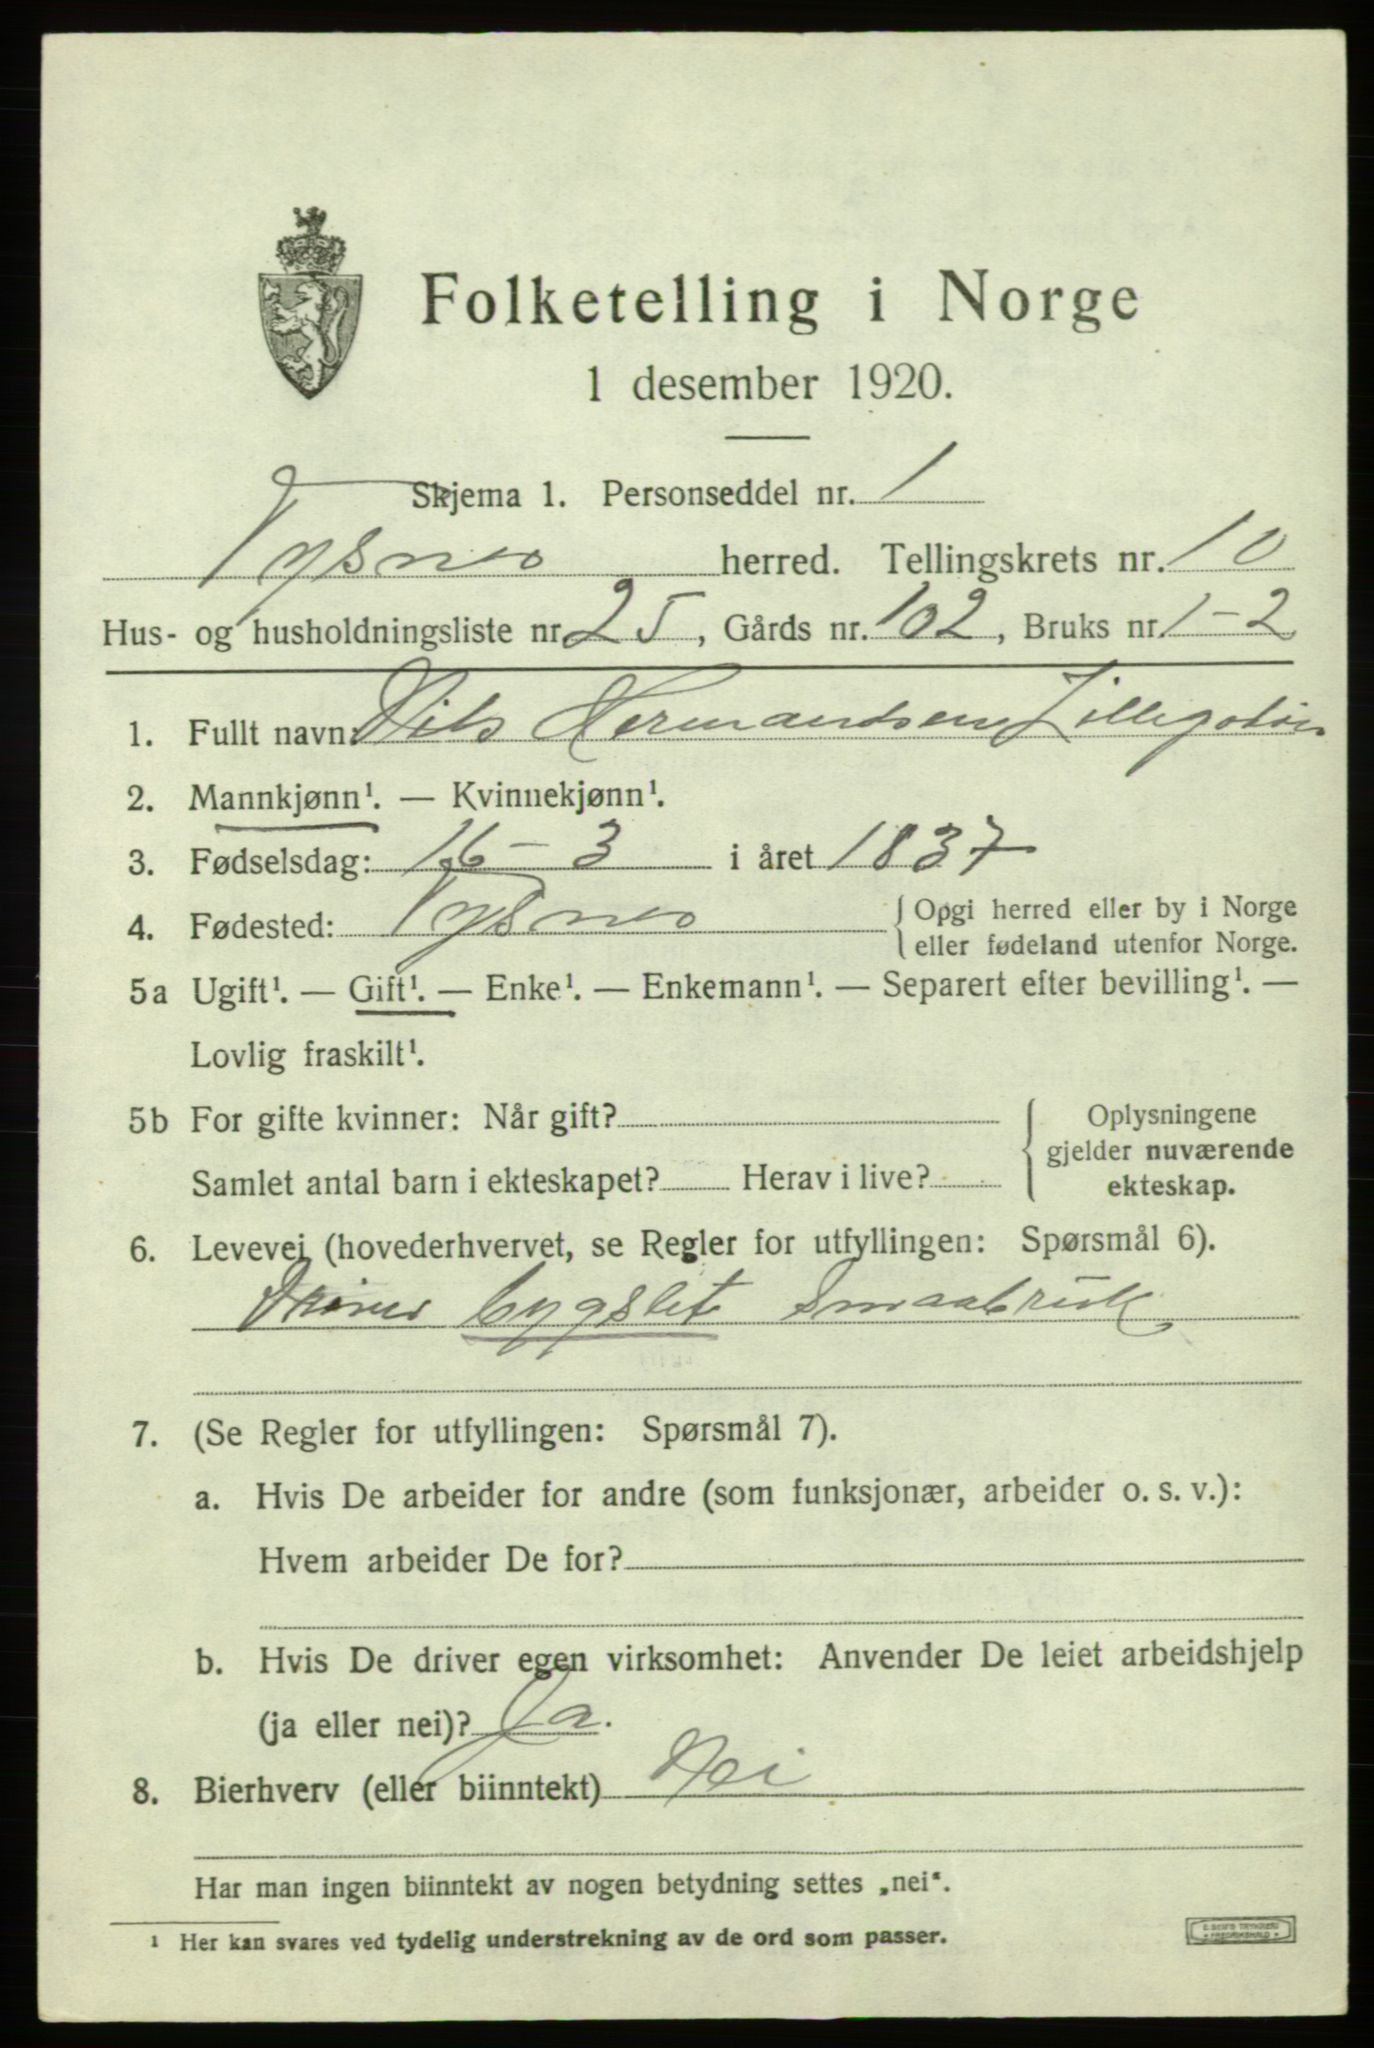 Folketelling i Norge
1 desember 1920.
Skjema 1. Personseddel nr. 1
Tysnes herred. Tellingskrets nr. 10
Hus- og husholdningsliste nr. 25, Gårds nr. 102, Bruks nr. 1-2
1. Fullt navn: Nils Hermandsen
2. Mannkjønn¹. — Kvinnekjønn¹.
3. Fødselsdag: 16-3 i året 1837
4. Fødested: Tysnes { Opgi herred eller by i Norge
eller fødeland utenfor Norge.
5a Ugift¹. — Gift¹. — Enke¹. — Enkemann¹. — Separert efter bevilling¹. —
Lovlig fraskilt¹.
5b For gifte kvinner: Når gift?
Samlet antal barn i ekteskapet? Herav i live?
{ Oplysningene
gjelder nuværende
ekteskap.
6. Levevei (hovederhvervet, se Regler for utfyllingen: Spørsmål 6).
Driver bygslet Smaabruk
7. (Se Regler for utfyllingen: Spørsmål 7).
a. Hvis De arbeider for andre (som funksjonær, arbeider o. s. v.):
Hvem arbeider De for?
b. Hvis De driver egen virksomhet: Anvender De leiet arbeidshjelp
(ja eller nei)? Ja.
8. Bierhverv (eller biinntekt) Nei
Har man ingen biinntekt av nogen betydning settes „nei“.
¹ Her kan svares ved tydelig understrekning av de ord som passer.